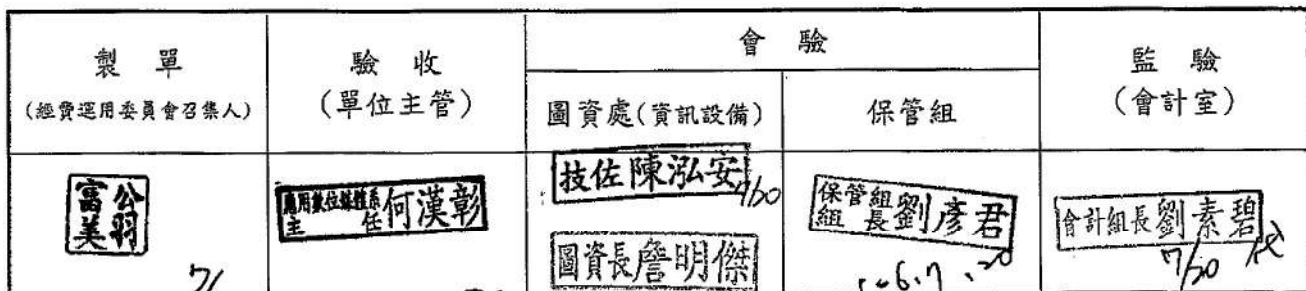 製單
(經費運用委員會召集人)
驗收
(單位主管)
會驗
圖資處(資訊設備)
保管組
監驗
(會計室)
公羽
富美
應用數位媒體系
主任
何漢彰
技佐陳泓安
7/20
圖資長詹明傑
保管組
組長
劉彥君
106.7.20
會計組長劉素碧
7/20 代